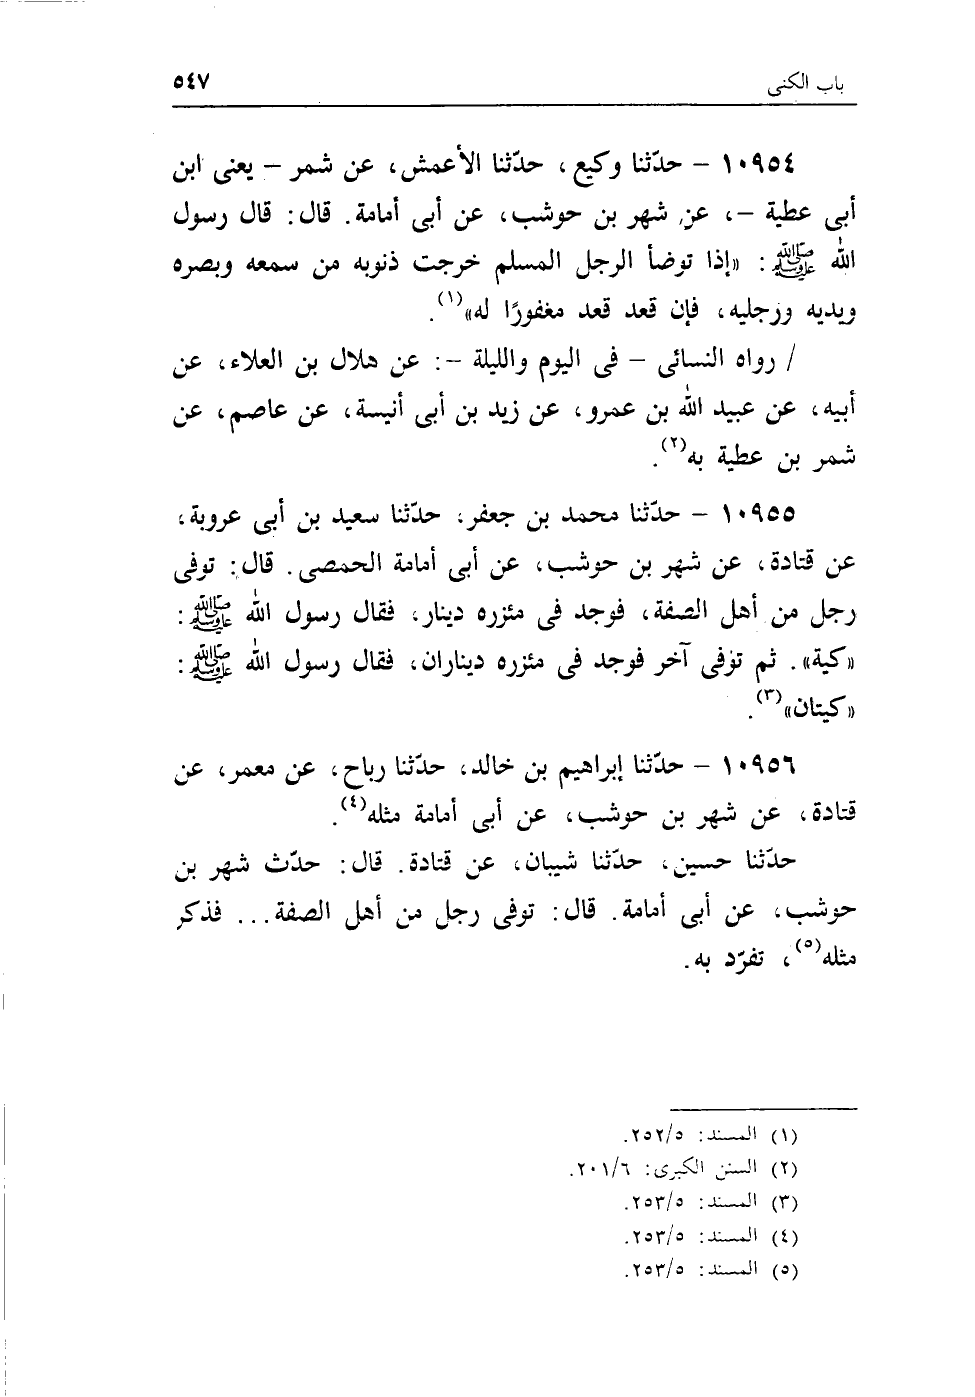 باب الكنى ٥٤٧
١٠٩٥٤ - حدّثنا وكيع، حدّثنا الأعمش، عن شمر - يعنى ابن
أبى عطية -، عن شهر بن حوشب، عن أبى أمامة. قال: قال رسول
الله ﷺ: «إذا توضأ الرجل المسلم خرجت ذنوبه من سمعه وبصره
ويديه ورجليه، فإن قعد قعد مغفورًا له»(١).
/ رواه النسائى - فى اليوم والليلة -: عن هلال بن العلاء، عن
أبيه، عن عبيد الله بن عمرو، عن زيد بن أبى أنيسة، عن عاصم، عن
شمر بن عطية به(٢).
١٠٩٥٥ - حدّثنا محمد بن جعفر، حدّثنا سعيد بن أبى عروبة،
عن قتادة، عن شهر بن حوشب، عن أبى أمامة الحمصى. قال: توفى
رجل من أهل الصفة، فوجد فى مئزره دينار، فقال رسول الله ﷺ:
«كية». ثم توفى آخر فوجد فى مئزره ديناران، فقال رسول الله ﷺ:
«كيتان»(٣).
١٠٩٥٦ - حدّثنا إبراهيم بن خالد، حدّثنا رباح، عن معمر، عن
قتادة، عن شهر بن حوشب، عن أبى أمامة مثله(٤).
حدّثنا حسين، حدّثنا شيبان، عن قتادة. قال: حدّث شهر بن
حوشب، عن أبى أمامة. قال: توفى رجل من أهل الصفة... فذكر
مثله(٥)، تفرّد به.
(١) المسند: ٢٥٢/٥.
(٢) السنن الكبرى: ٢٠١/٦.
(٣) المسند: ٢٥٣/٥.
(٤) المسند: ٢٥٣/٥.
(٥) المسند: ٢٥٣/٥.